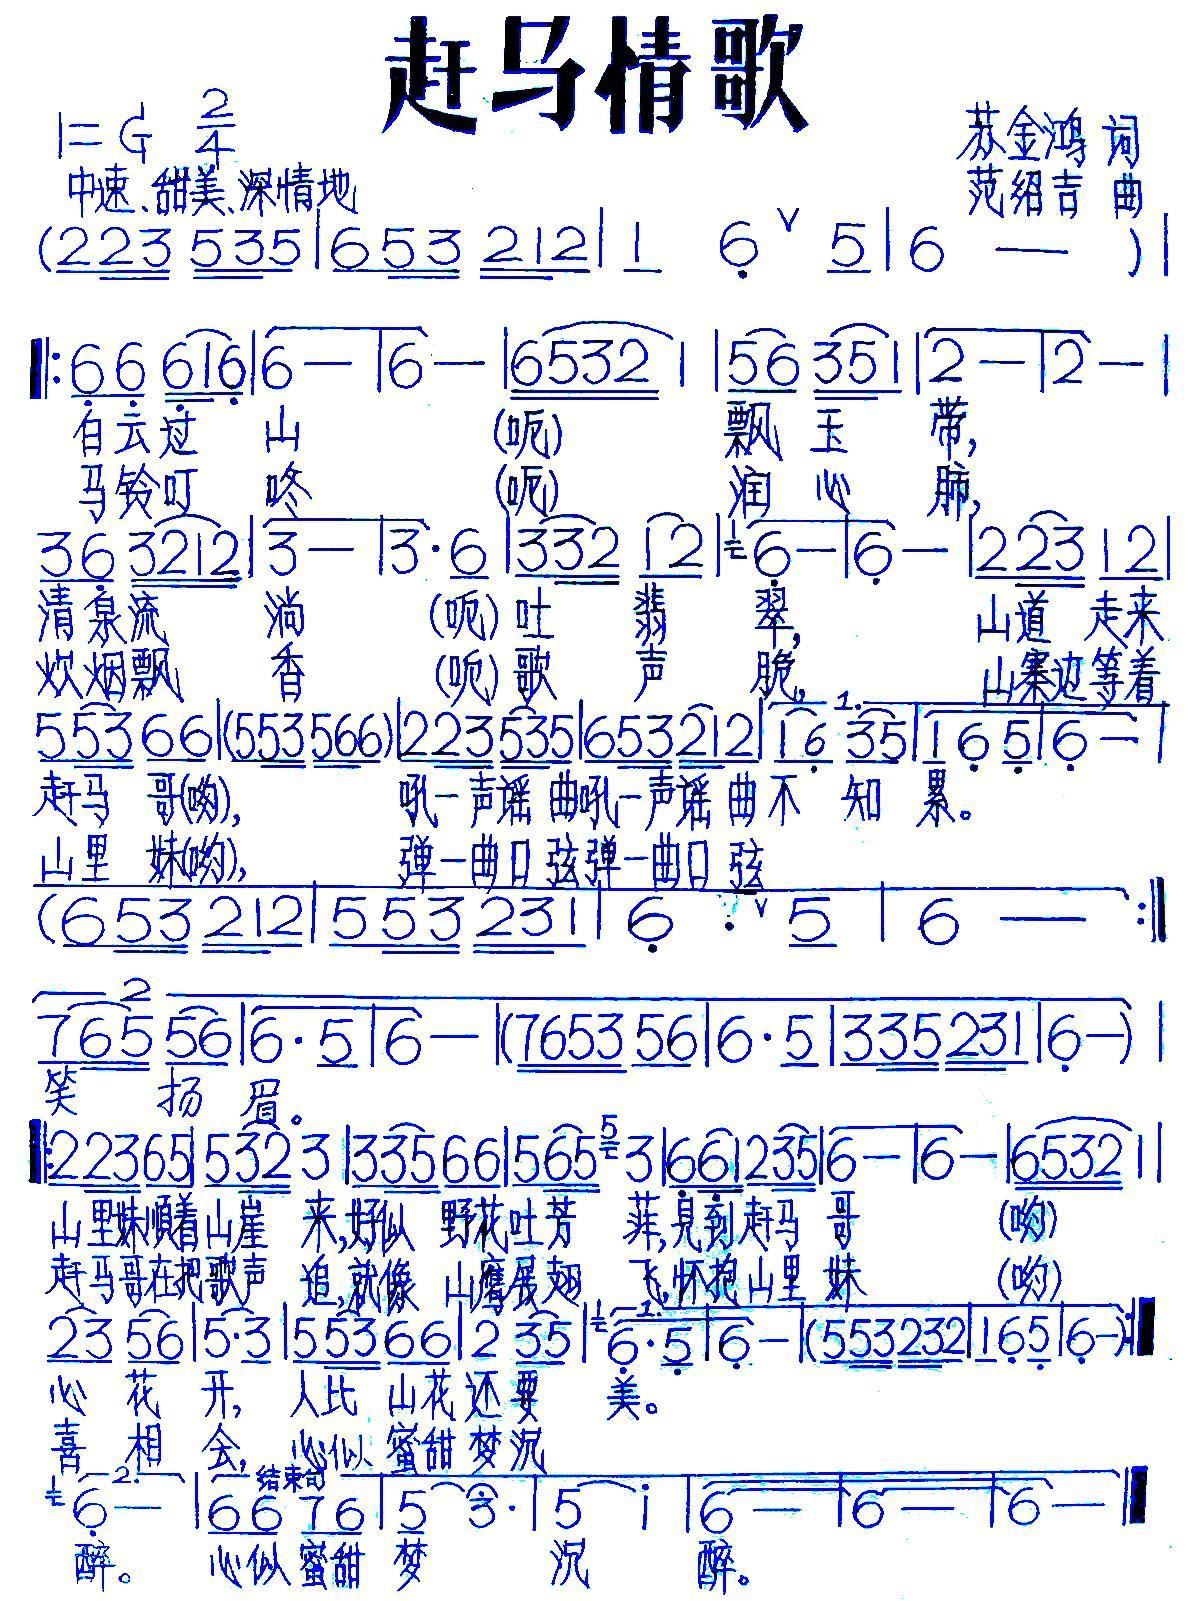 赶马情歌
1=G 2/4
苏金鸿 词
中速、甜美、深情地
范绍吉 曲
(223 535|653 212|1 6 ∨ 5|6 — )|
‖: 66 616|6 — |6 — |6532 1 |56 351|2 — |2 — |
白云过 山 (呃) 飘 玉 带,
马铃叮 咚 (呃) 润 心 肺,
36 3212|3 — |3· 6|332 12|1/2 6 — |6 — |223 12|
清泉流 淌 (呃)吐 翡 翠, 山道 走来
炊烟飘 香 (呃)歌 声 脆, 山寨边等着
1.
553 66|(553 566)|223 535|653 212|16 35|1 6 5|6 — |
赶马 哥(哟), 吼一声谣 曲吼一声谣 曲不 知 累。
山里 妹(哟), 弹一曲口 弦弹一曲口 弦
(653 212|553 231|6 · ∨ 5|6 — :‖
2
765 56|6·5|6 — |(7653 56|6·5|335 231|6 — )|
笑 扬 眉。
‖: 223 65|532 3|335 66|565 5 3|661 235|6 — |6 — |6532 1|
山里妹顺着山崖 来,好似 野花吐芳 菲,见到赶马 哥 (哟)
赶马哥在把歌声 追,就像 山鹰展翅 飞,怀抱山里 妹 (哟)
1.
23 56|5·3|553 66|2 35|1/2 6·5|6 — |(553 232|165|6 — ):‖
心 花 开, 人比 山花还要 美。
喜 相 会, 心似 蜜甜梦沉
2. 结束句
1/2 6 — |66 76|5 3·|5 i|6 — |6 — |6 — ‖
醉。 心似 蜜甜 梦 沉 醉。